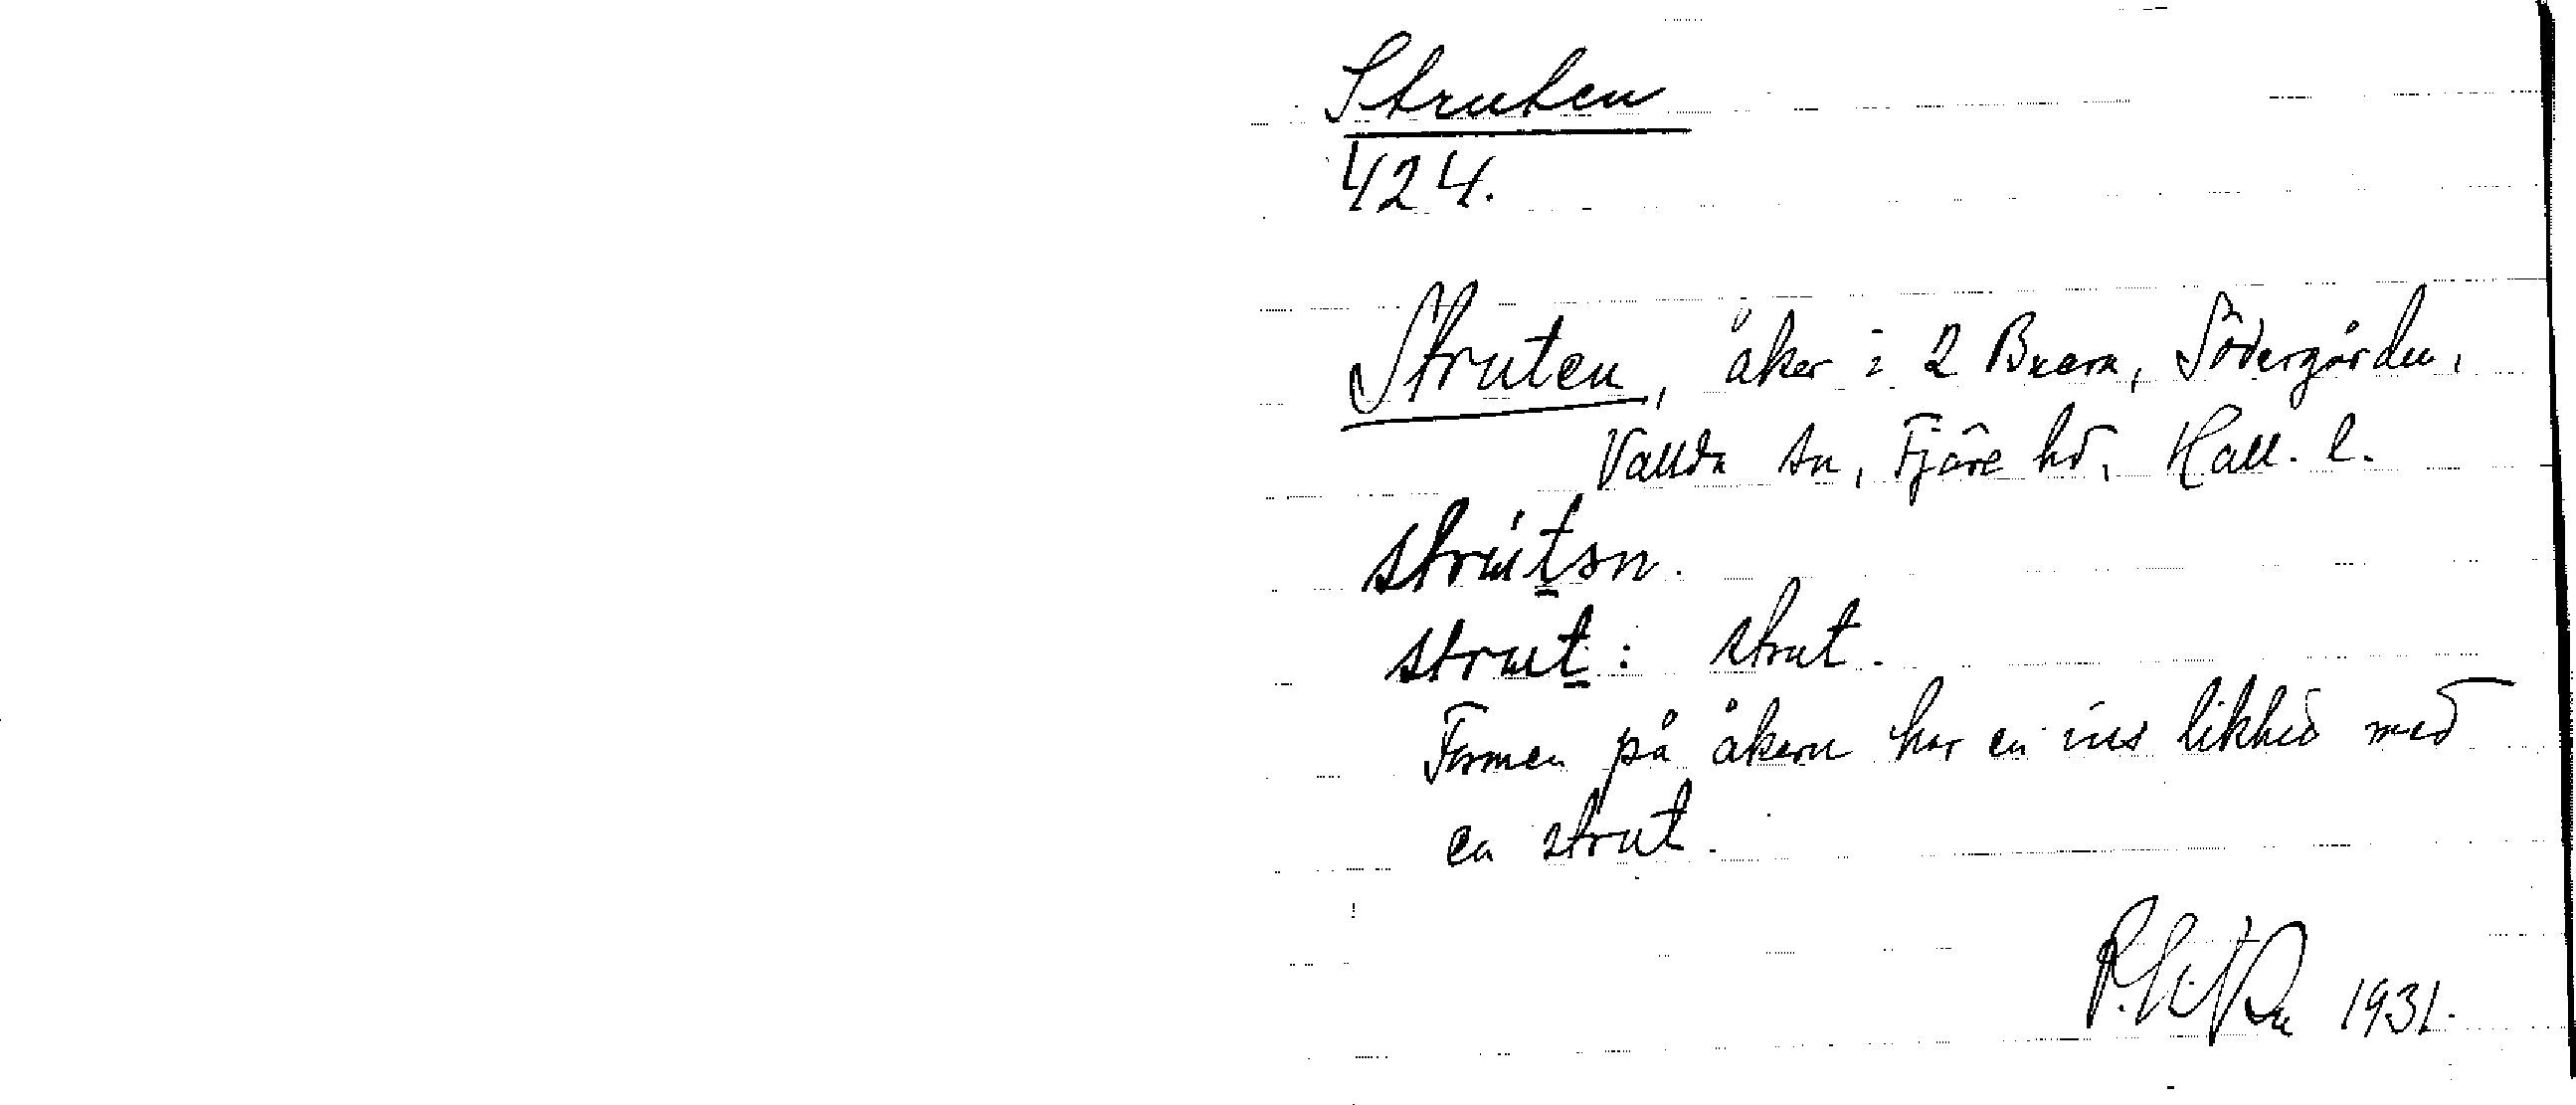 Struten
424.
Struten, åker i 2 Buera, Södergården,
Vallda sn, Fjäre hd, Hall. l.
strút̲ən.
strut̲: strut.
Formen på åkern har en viss likhed med
en strut.
1931.